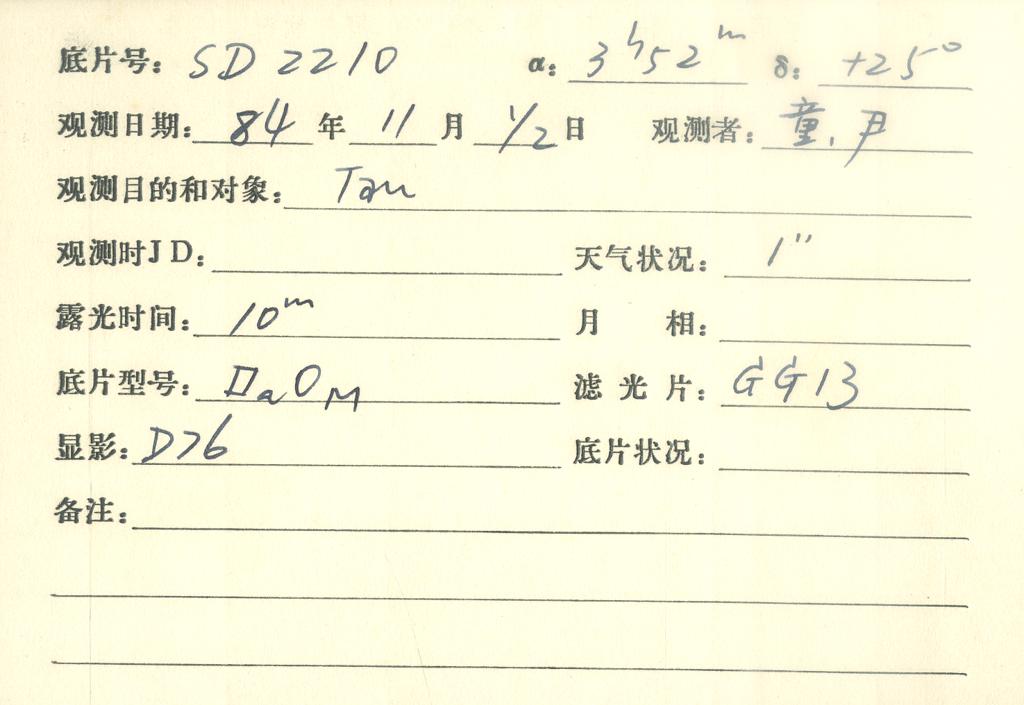 底片号: SD2210 α: 3h52m δ: +25°
观测日期: 84 年 11 月 1/2 日 观测者: 童、尹
观测目的和对象: Tau
观测时JD:
天气状况: 1"
露光时间: 10m
月 相:
底片型号: IIaOM
滤光片: GG13
显影: D76
底片状况:
备注: